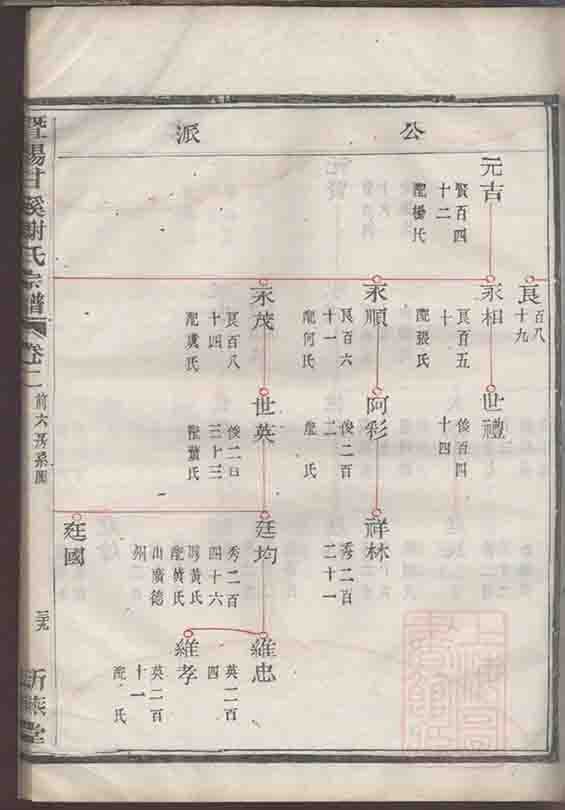 公派
元吉
賢百四
十二
配楊氏
良
百八
十九
永相
良百五
十
配張氏
永順
良百六
十一
配何氏
永茂
良百八
十四
配虞氏
世禮
俊百四
十四
阿彩
俊二百
二
配 氏
世英
三十三
配黃氏
祥林
秀二百
二十一
廷均
秀二百
四十六
配黃氏
出廣德
州
廷國
維忠
英二百
四
維孝
英二百
十一
配 氏
暨陽甘溪謝氏宗譜
卷二
前六房系圖
三十九